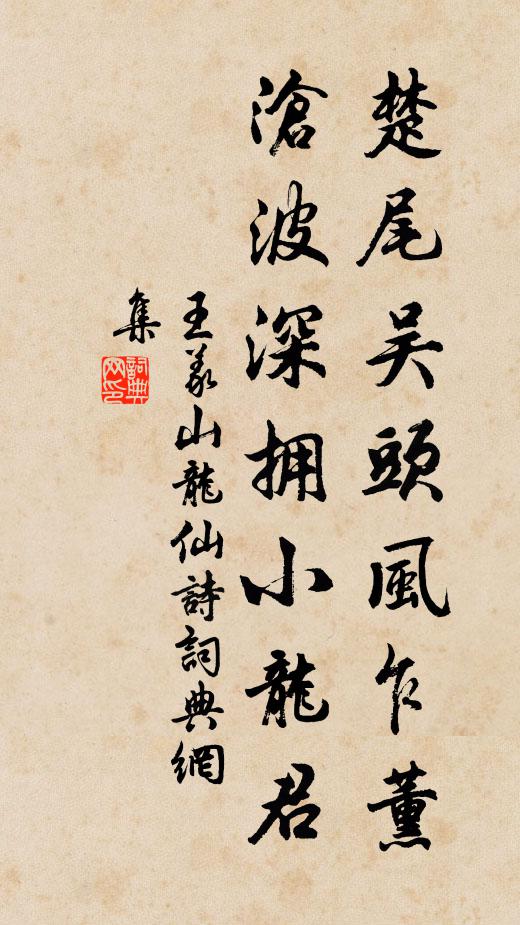 楚尾吴頭風乍薰
滄波深拥小龍君
王义山龍仙詩詞典網
集
詞典网印